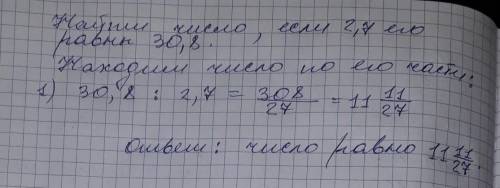 Найти число, если 2,7 его
равны 30,8.
Находим число по его части:
1) 30,8 : 2,7 = 308/27 = 11 11/27
Ответ: число равно 11 11/27.